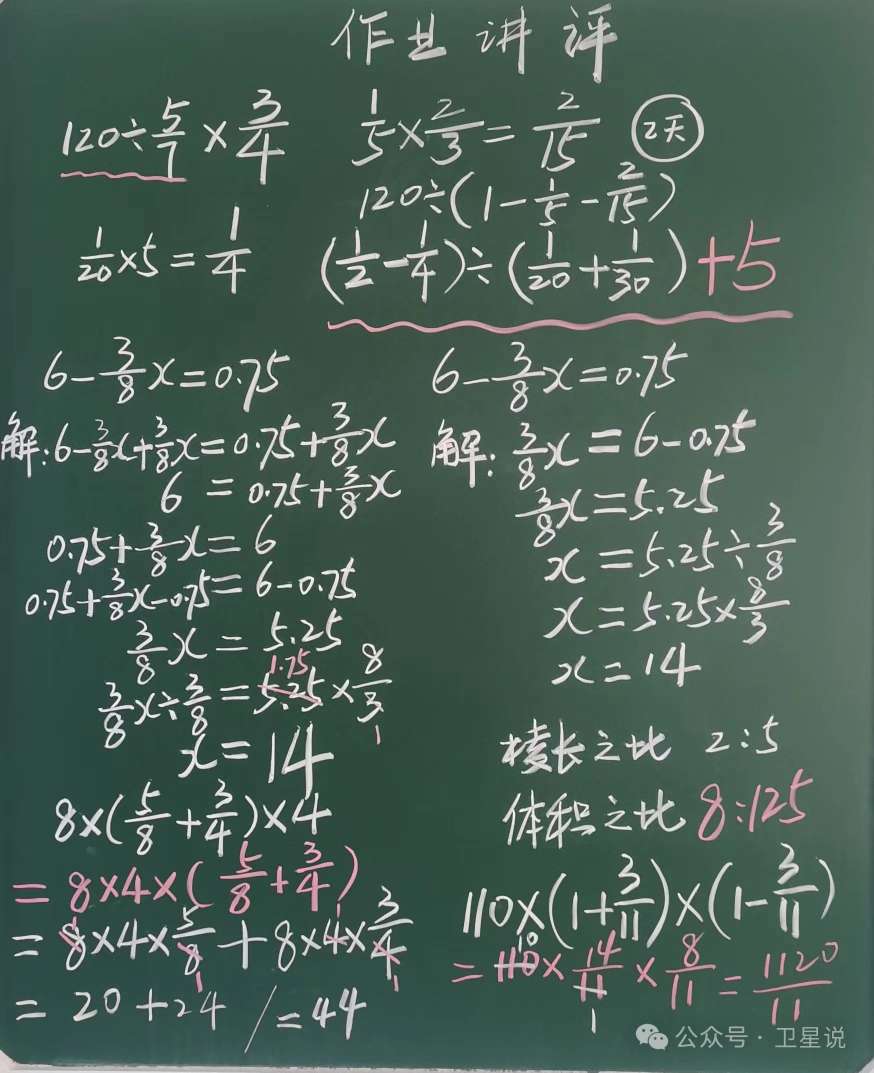 作业讲评
120÷5/1×3/4
1/5×2/3=2/15 2天
120÷(1-1/5-2/15)
1/20×5=1/4
(1/2-1/4)÷(1/20+1/30)+5
6-3/8x=0.75
解:6-3/8x+3/8x=0.75+3/8x
6=0.75+3/8x
0.75+3/8x=6
0.75+3/8x-0.75=6-0.75
3/8x=5.25
3/8x÷3/8=5.25×8/3
1.75
1
x=14
8×(5/8+3/4)×4
=8×4×(5/8+3/4)
=8×4×5/8+8×4×3/4
1
1
1
1
=20+24
=44
6-3/8x=0.75
解:3/8x=6-0.75
3/8x=5.25
x=5.25÷3/8
x=5.25×8/3
x=14
棱长之比 2:5
体积之比 8:125
110×(1+3/11)×(1-3/11)
=110×14/11×8/11=1120/11
10
1
公众号·卫星说